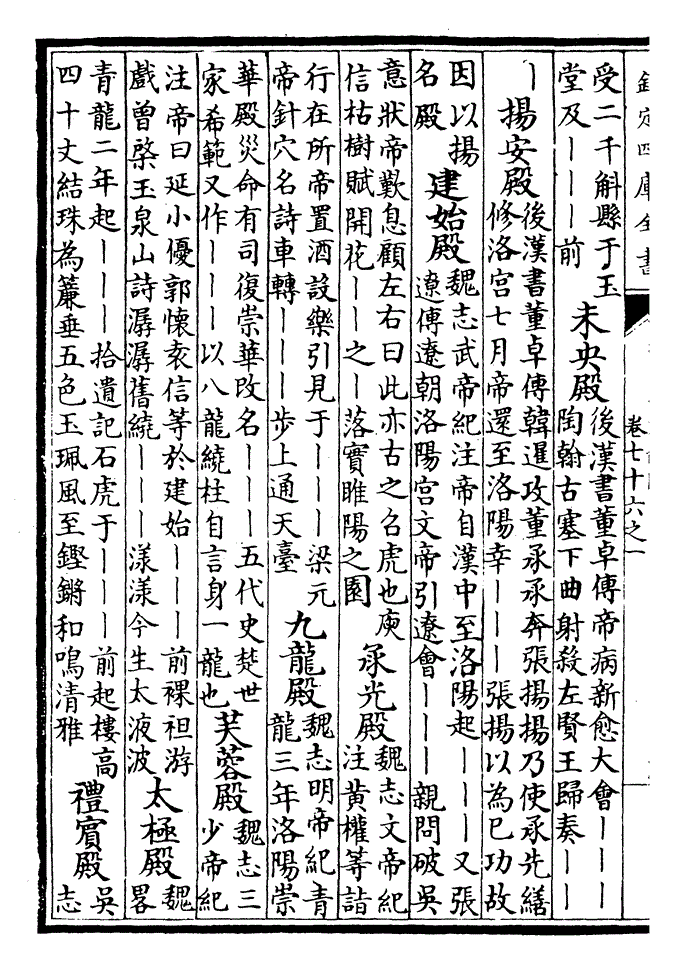 欽定四庫全書
卷七十六之一
受二千斛縣于玉
堂及｜｜｜前
未央殿
後漢書董卓傳帝病新愈大會｜｜｜
陶翰古塞下曲射殺左賢王歸奏｜｜
｜
揚安殿
後漢書董卓傳韓暹攻董承承奔張揚揚乃使承先繕
修洛宮七月帝還至洛陽幸｜｜｜張揚以為已功故
因以揚
名殿
建始殿
魏志武帝紀注帝自漢中至洛陽起｜｜｜又張
遼傳遼朝洛陽宮文帝引遼會｜｜｜親問破吳
意狀帝歎息顧左右曰此亦古之召虎也庾
信枯樹賦開花｜｜之｜落實睢陽之園
承光殿
魏志文帝紀
注黃權等詣
行在所帝置酒設樂引見于｜｜｜梁元
帝針穴名詩車轉｜｜｜步上通天臺
九龍殿
魏志明帝紀青
龍三年洛陽崇
華殿災命有司復崇華改名｜｜｜五代史楚世
家希範又作｜｜｜以八龍繞柱自言身一龍也
芙蓉殿
魏志三
少帝紀
注帝曰延小優郭懷袁信等於建始｜｜｜前裸袒游
戲曾棨玉泉山詩潺潺舊繞｜｜｜漾漾今生太液波
太極殿
魏
畧
青龍二年起｜｜｜拾遺記石虎于｜｜｜前起樓高
四十丈結珠為簾垂五色玉珮風至鏗鏘和鳴清雅
禮賓殿
吳
志